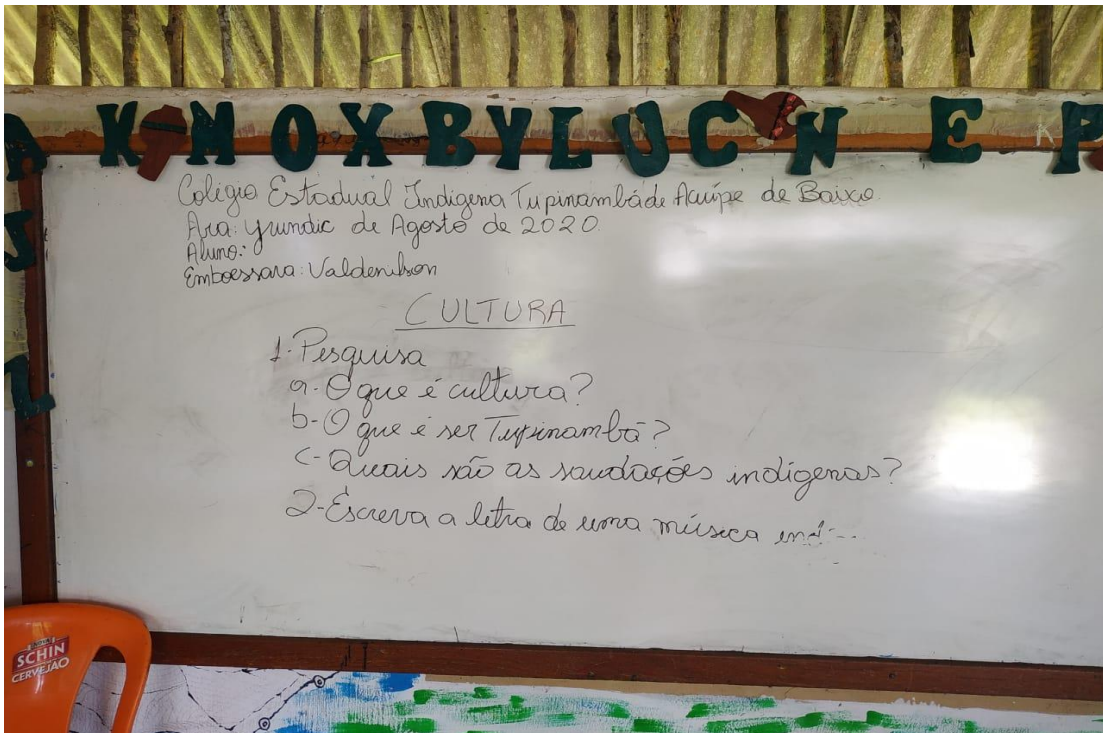 A K M O X B Y L U C N E P
J
Z
Colégio Estadual Indígena Tupinambá de Acuípe de Baixo
Ara: Yrundic de Agosto de 2020.
Aluno:
Emboessara: Valdenilson
CULTURA
1-Pesquisa
a-O que é cultura?
b-O que é ser Tupinambá?
c-Quais são as saudações indígenas?
2-Escreva a letra de uma música
SCHIN
CERVEJÃO